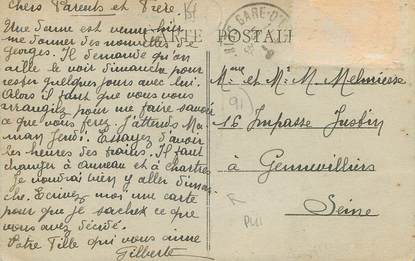 Chers Parents et Frère.
Une dame est venue hier
me donner des nouvelles de
Georges. Il demande qu'on
aille le voir dimanche pour
rester quelques jours avec lui.
Alors il faut que vous vous
arrangiez pour me faire savoir
ce que vous ferez. J'attends Ma-
man Jeudi. Essayez d'avoir
les heures des trains. Il faut
changer à et à Chartres
Je voudrais bien y aller diman-
che. Ecrivez moi une carte
pour que je sache ce que
vous avez décidé.
Votre Fille qui vous aime
Gilberte
CARTE POSTALE
GARE
Mme et Mr M.
91
16 Impasse
à Gennevilliers
Seine